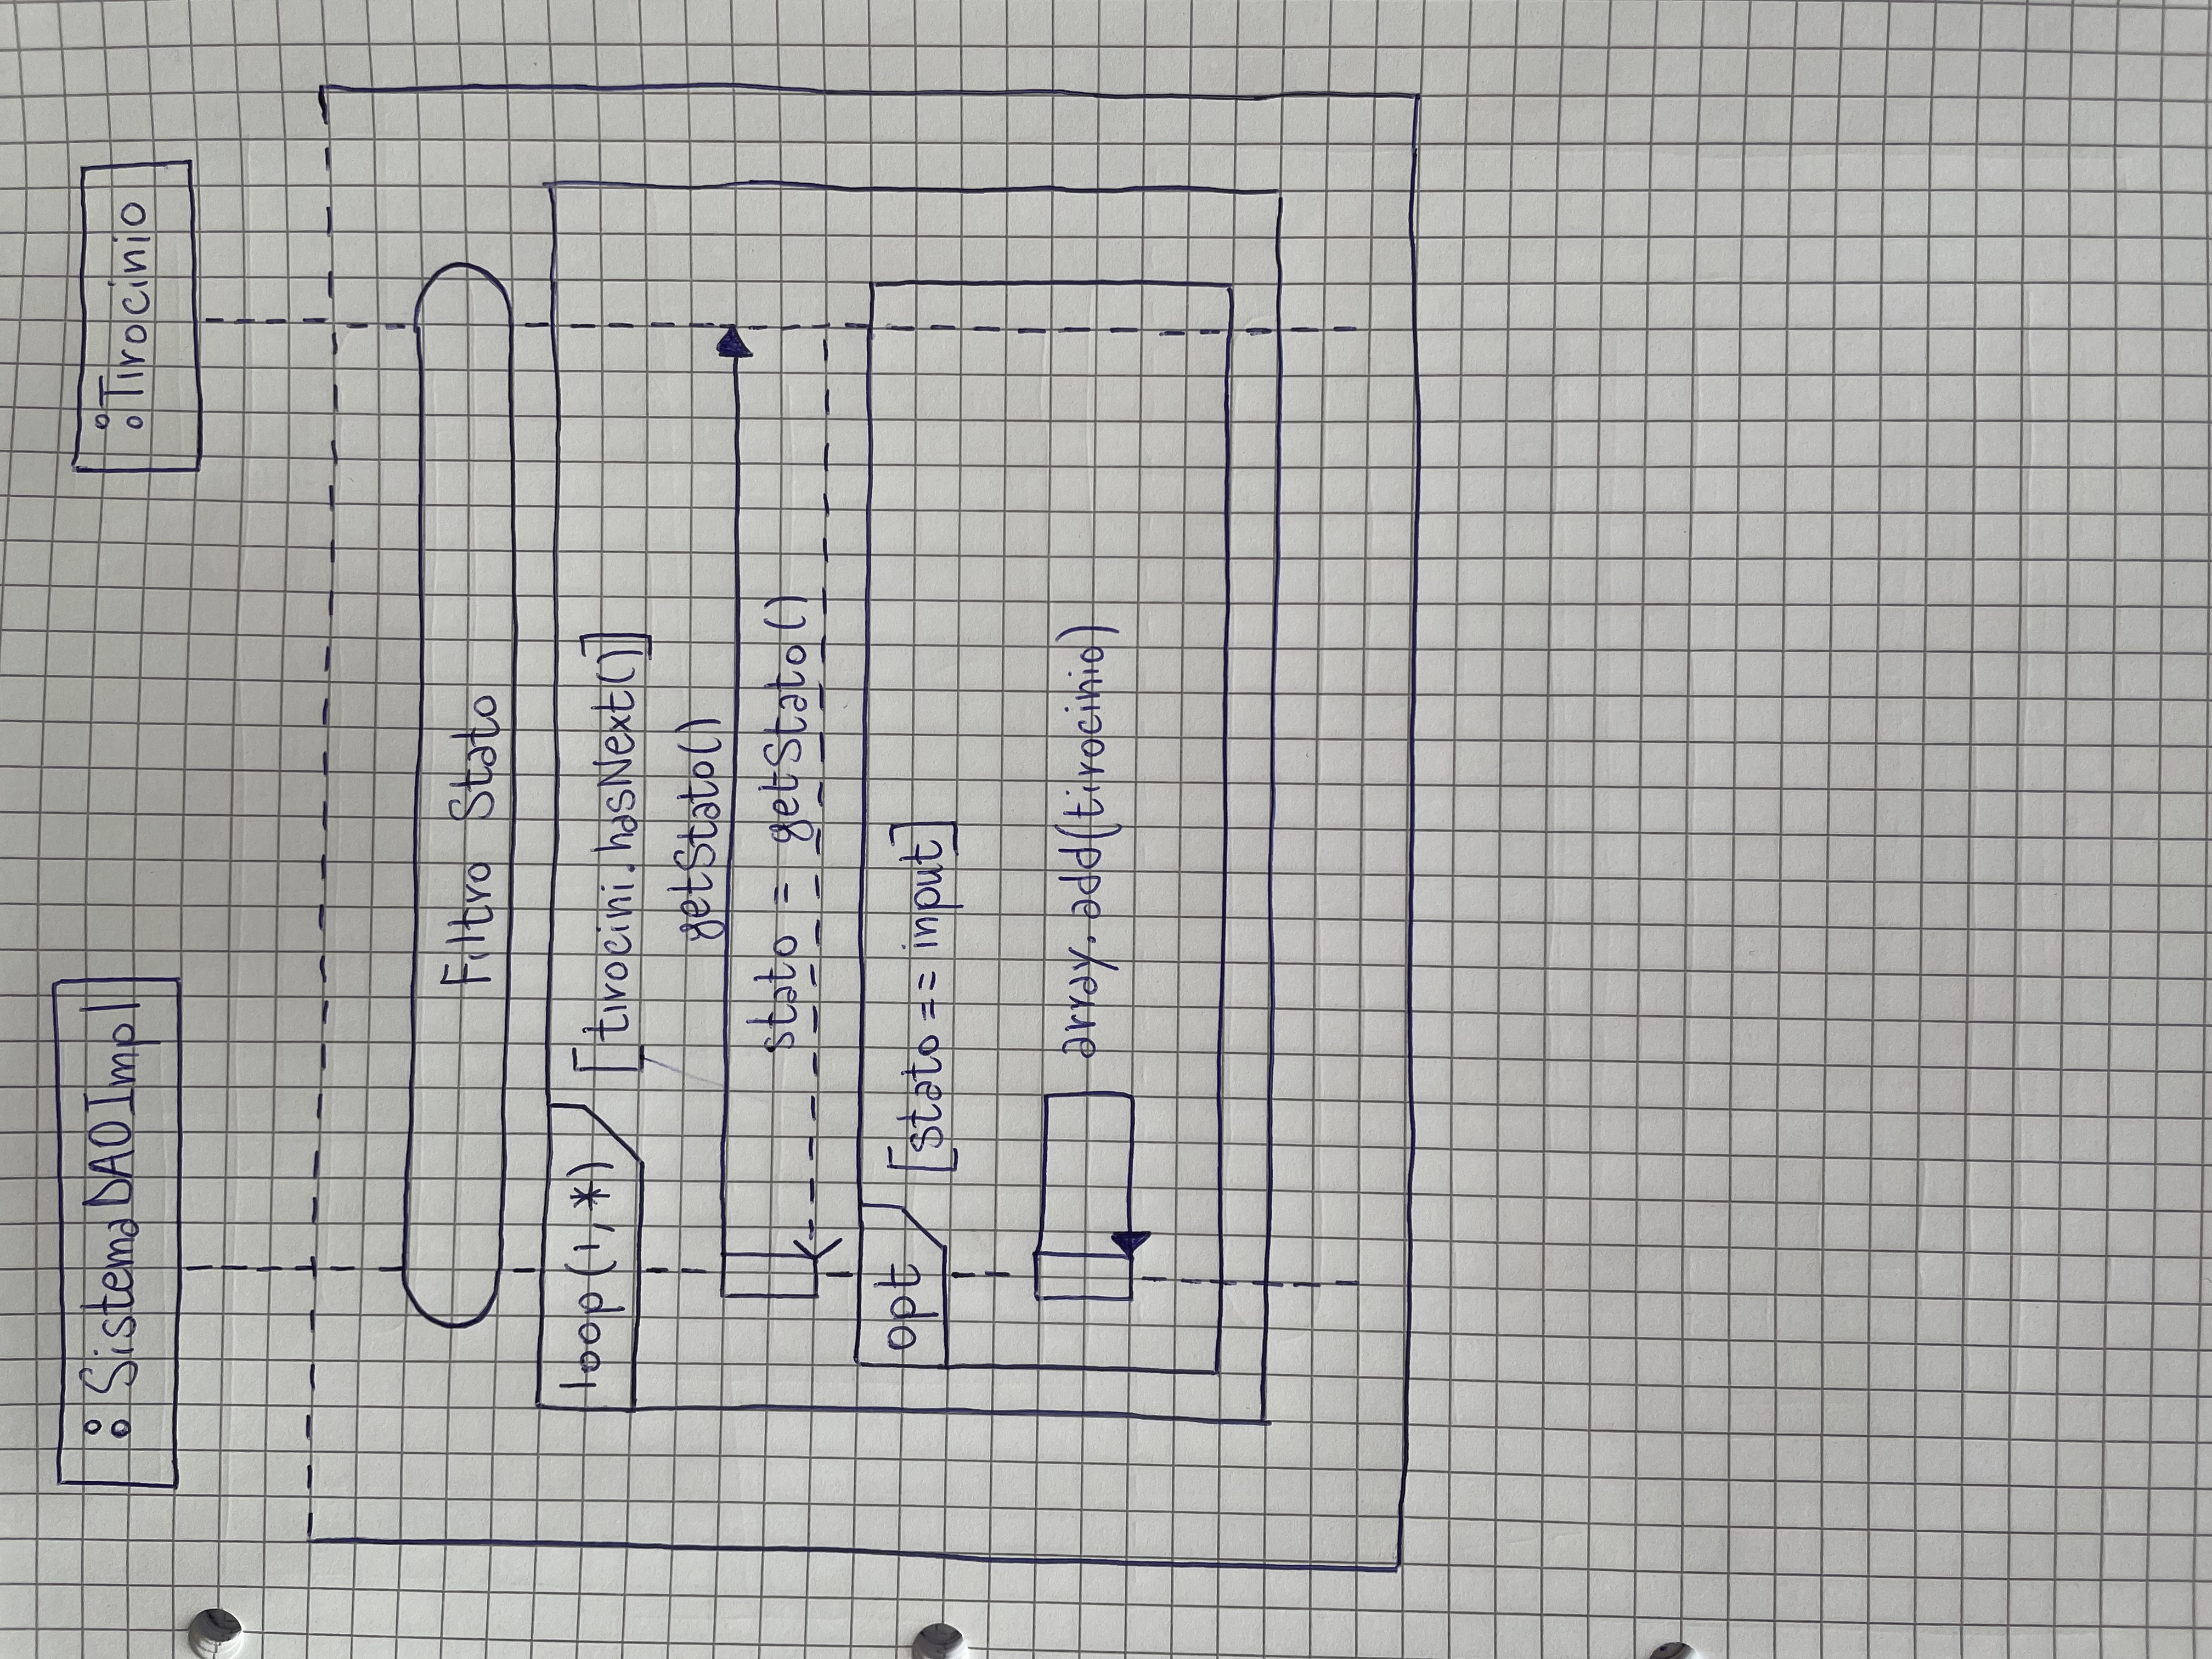 : SistemaDAOImpl
:Tirocinio
Filtro Stato
loop(1,*)
[tirocini.hasNext()]
getStato()
stato = getStato()
opt
[stato == input]
array.add(tirocinio)